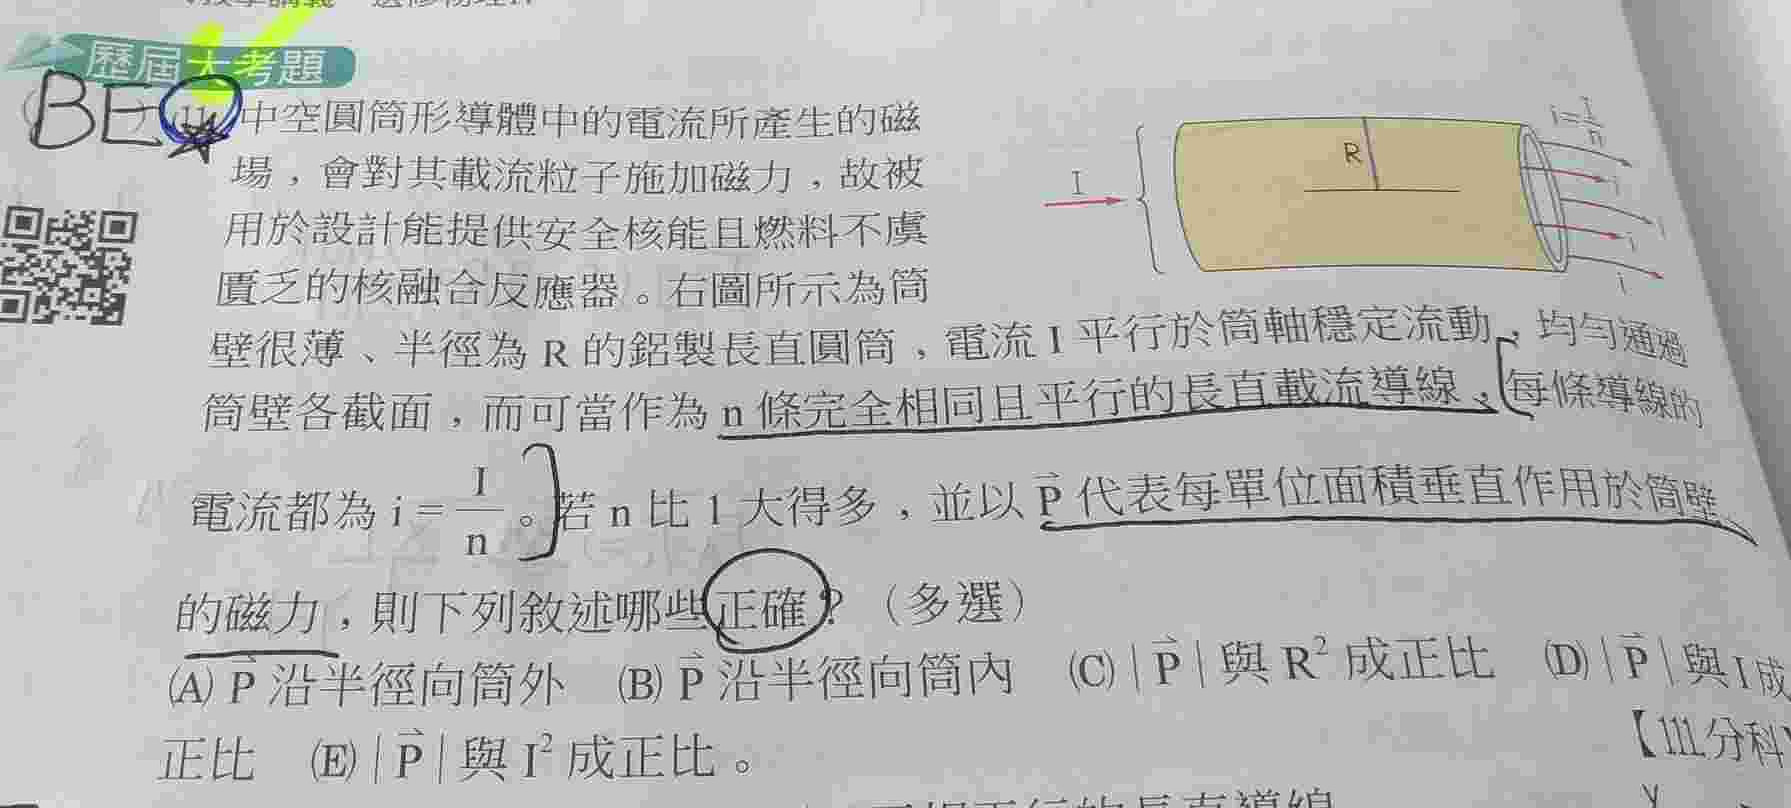 歷屆大考題
BE 11. 中空圓筒形導體中的電流所產生的磁
場，會對其載流粒子施加磁力，故被
用於設計能提供安全核能且燃料不虞
匱乏的核融合反應器。右圖所示為筒
壁很薄、半徑為 R 的鋁製長直圓筒，電流 I 平行於筒軸穩定流動，均勻通過
筒壁各截面，而可當作為 n 條完全相同且平行的長直載流導線，每條導線的
電流都為 i = I/n。若 n 比 1 大得多，並以 P⃗ 代表每單位面積垂直作用於筒壁
的磁力，則下列敘述哪些正確？（多選）
(A) P⃗ 沿半徑向筒外 (B) P⃗ 沿半徑向筒內 (C) | P⃗ | 與 R² 成正比 (D) | P⃗ | 與 I 成
正比 (E) | P⃗ | 與 I² 成正比。
【111.分科】
I
R
i = I/n
i
i
i
i